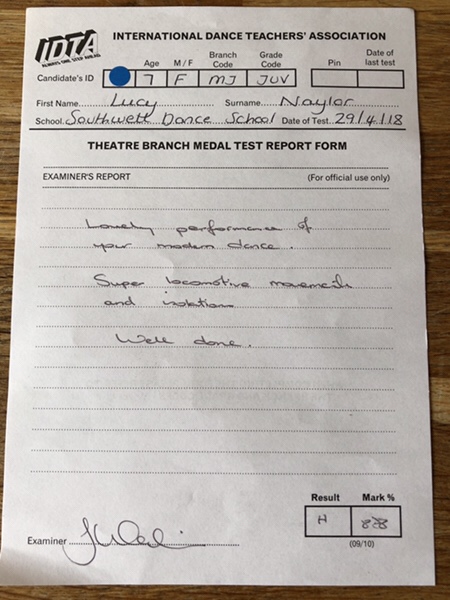 IDTA
ALWAYS ONE STEP AHEAD
INTERNATIONAL DANCE TEACHERS' ASSOCIATION
Age M / F Branch Code Grade Code Pin Date of last test
Candidate's ID 7 F MJ JUV
First Name Lucy Surname Naylor
School Southwell Dance School Date of Test 29/4/18
THEATRE BRANCH MEDAL TEST REPORT FORM
EXAMINER'S REPORT (For official use only)
Lovely performance of
your modern dance.
Super locomotive movements
and isolations
Well done.
Result Mark %
H 88
Examiner
(09/10)